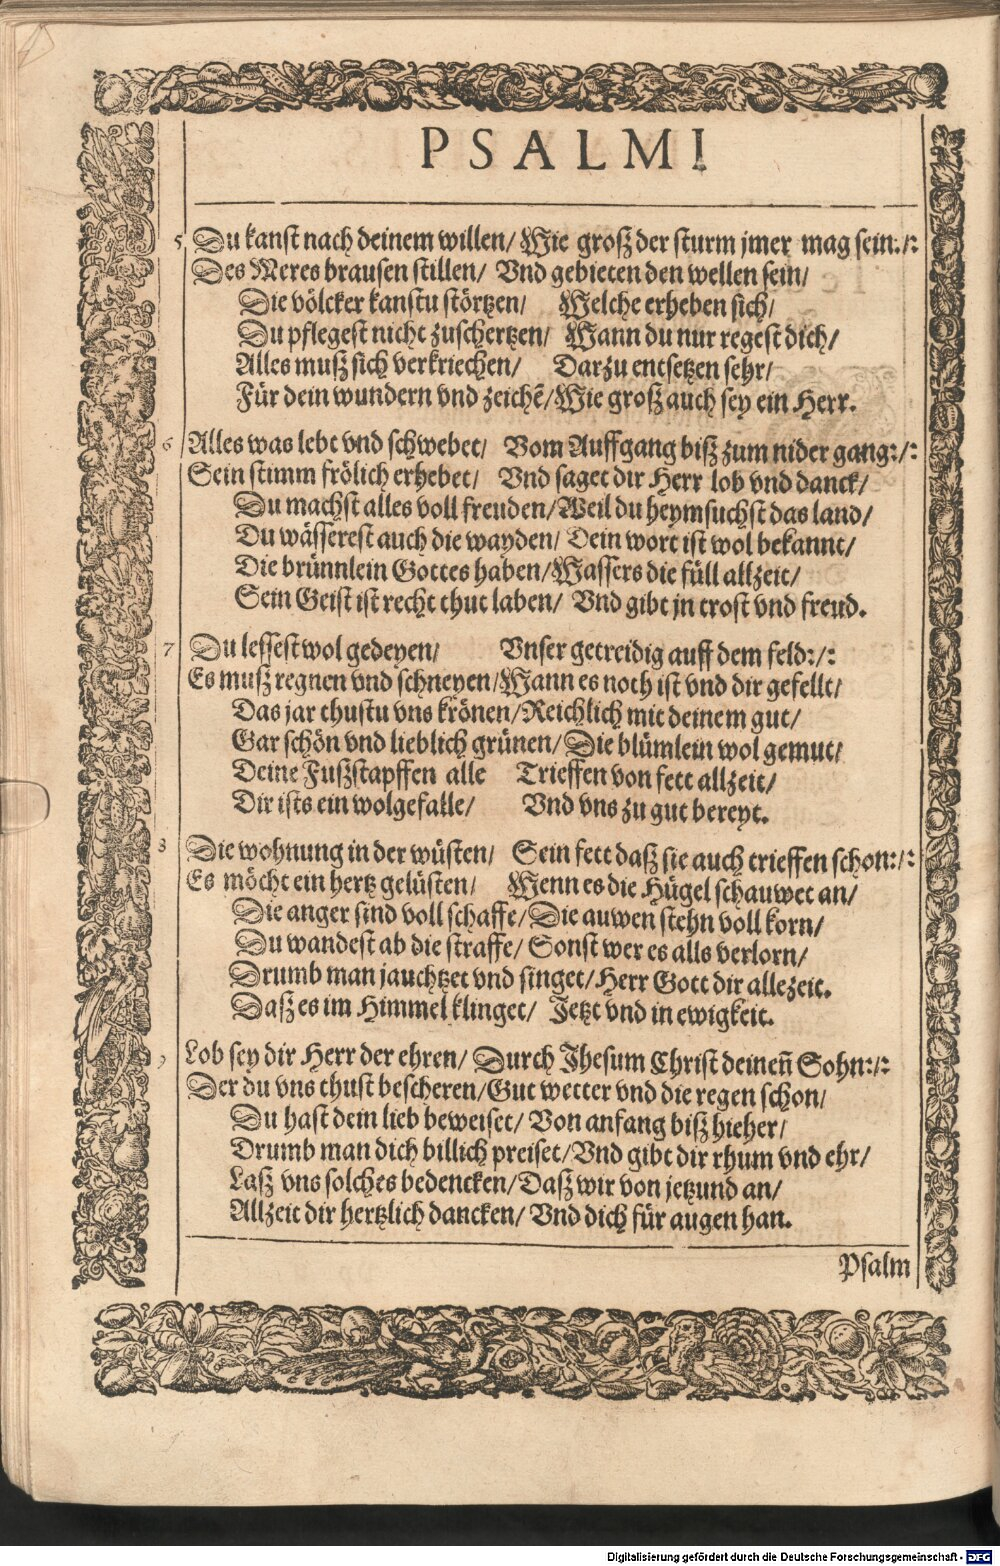 PSALMI
5 Du kanst nach deinem willen/ Wie groß der sturm jmer mag sein:/:
Des Meres brausen stillen/ Vnd gebieten den wellen sein/
Die völcker kanstu störtzen/ Welche erheben sich/
Du pflegest nicht zuschertzen/ Wann du nur regest dich/
Alles muß sich verkriechen/ Darzu entsetzen sehr/
Für dein wundern vnd zeichẽ/ Wie groß auch sey ein Herr.
6 Alles was lebt vnd schwebet/ Vom Auffgang biß zum nider gang:/:
Sein stimm frölich erhebet/ Vnd saget dir Herr lob vnd danck/
Du machst alles voll freuden/ Weil du heymsuchst das land/
Du wässerest auch die wayden/ Dein wort ist wol bekannt/
Die brünnlein Gottes haben/ Wassers die füll allzeit/
Sein Geist ist recht thut laben/ Vnd gibt jn trost vnd freud.
7 Du lessest wol gedeyen/ Vnser getreidig auff dem feld:/:
Es muß regnen vnd schneyen/ Wann es noch ist vnd dir gefellt/
Das jar thustu vns krönen/ Reichlich mit deinem gut/
Gar schön vnd lieblich grünen/ Die blümlein wol gemut/
Deine Fußstapffen alle Trieffen von fett allzeit/
Dir ists ein wolgefalle/ Vnd vns zu gut bereyt.
8 Die wohnung in der wüsten/ Sein fett daß sie auch trieffen schon:/:
Es möcht ein hertz gelüsten/ Wenn es die Hügel schauwet an/
Die anger sind voll schaffe/ Die auwen stehn voll korn/
Du wandest ab die straffe/ Sonst wer es alls verlorn/
Drumb man jauchtzet vnd singet/ Herr Gott dir allezeit.
Daß es im Himmel klinget/ Jetzt vnd in ewigkeit.
9 Lob sey dir Herr der ehren/ Durch Jhesum Christ deineñ Sohn:/:
Der du vns thust bescheren/ Gut wetter vnd die regen schon/
Du hast dem lieb beweiset/ Von anfang biß hieher/
Drumb man dich billich preiset/ Vnd gibt dir rhum vnd ehr/
Laß vns solches bedencken/ Daß wir von jetzund an/
Allzeit dir hertzlich dancken/ Vnd dich für augen han.
Psalm
Digitalisierung gefördert durch die Deutsche Forschungsgemeinschaft - DFG